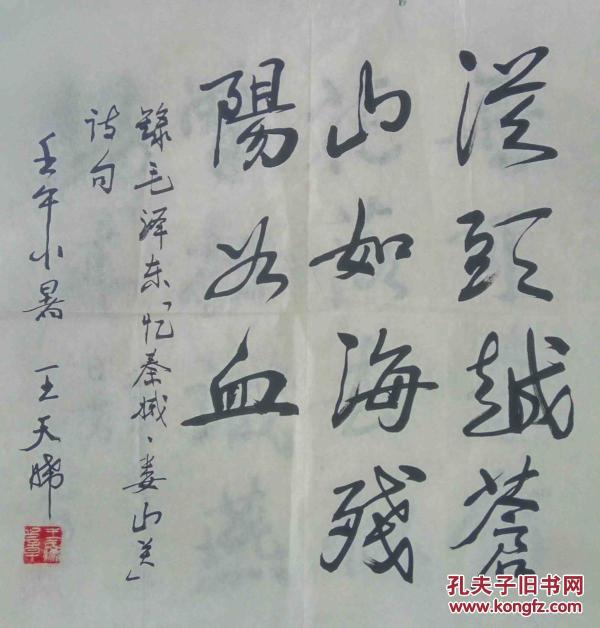 從頭越蒼
山如海残
陽如血
録毛泽东「忆秦娥·娄山关」
诗句
壬午小暑 王天
孔夫子旧书网
www.kongfz.com